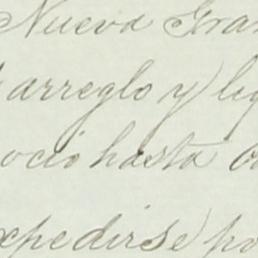 Nueva Gra
arreglo y li
ocio hasta
xpedirse po